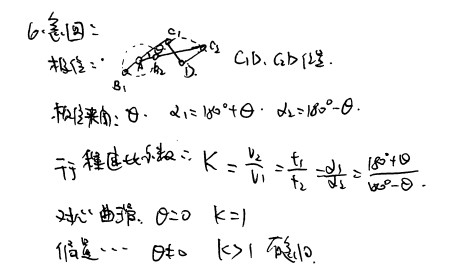 6. 急回:
极位: C₁ C₂ A B₂ B₁ D C₁D、C₂D位置
极位夹角: θ. α₁=180°+θ. α₂=180°-θ.
行程速比系数: K = v₂/v₁ = t₁/t₂ = α₁/α₂ = (180°+θ)/(180°-θ).
对心曲滑. θ=0 K=1
偏置… θ≠0 K>1 有急回.